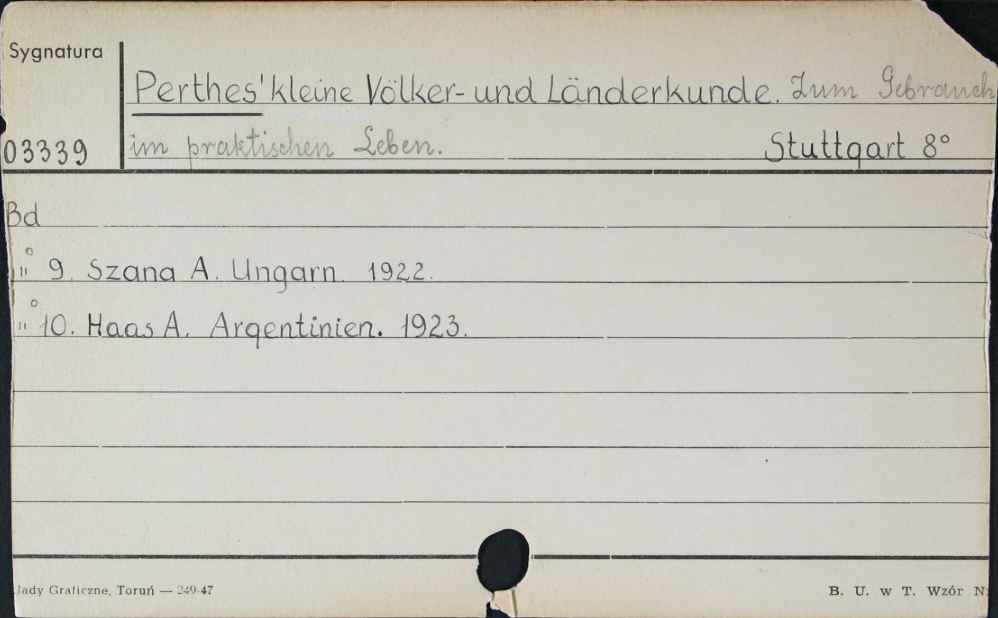 Sygnatura
Perthes' kleine Völker- und Länderkunde. Zum Gebrauch
03339 im praktischen Leben. Stuttgart 8°
Bd
" ° 9. Szana A. Ungarn. 1922.
" ° 10. Haas A. Argentinien. 1923.
łady Graficzne, Toruń — 249-47 B. U. w T. Wzór N